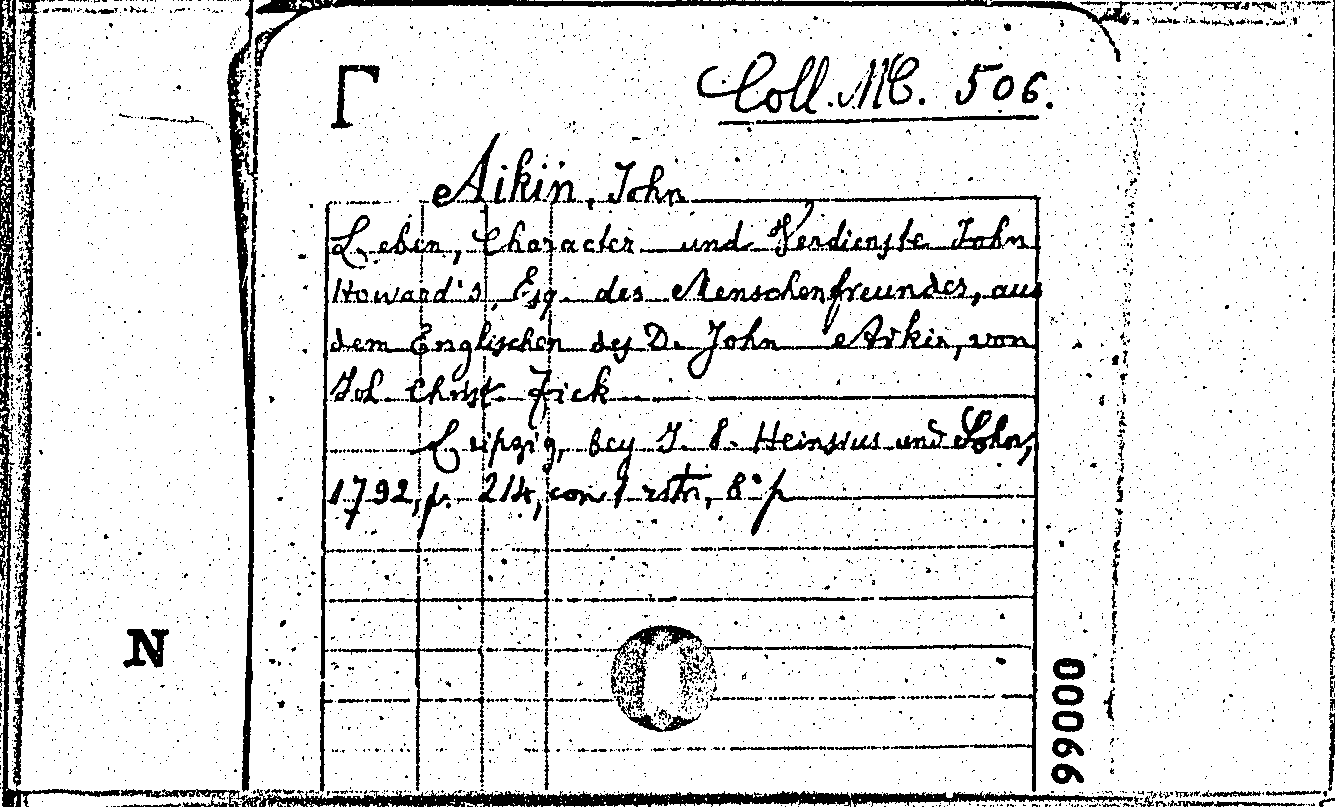 Γ
Coll. MC. 506.
Aikin, John
Leben, Character und Verdienste John
Howard's, Esq. des Menschenfreundes, aus
dem Englischen des D. John Aikin, von
Joh Christ Fick
Leipzig, bey J. S. Heinsius und Sohn,
1792, p. 214, con 1 rstr, 8° p
N
00096